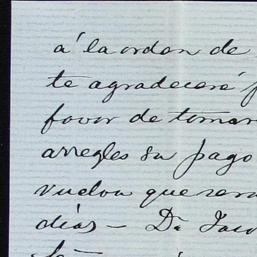 á la orden de
te agradeceré
favor de tomar
arregles su pago
vuelva que sera
días — Da.